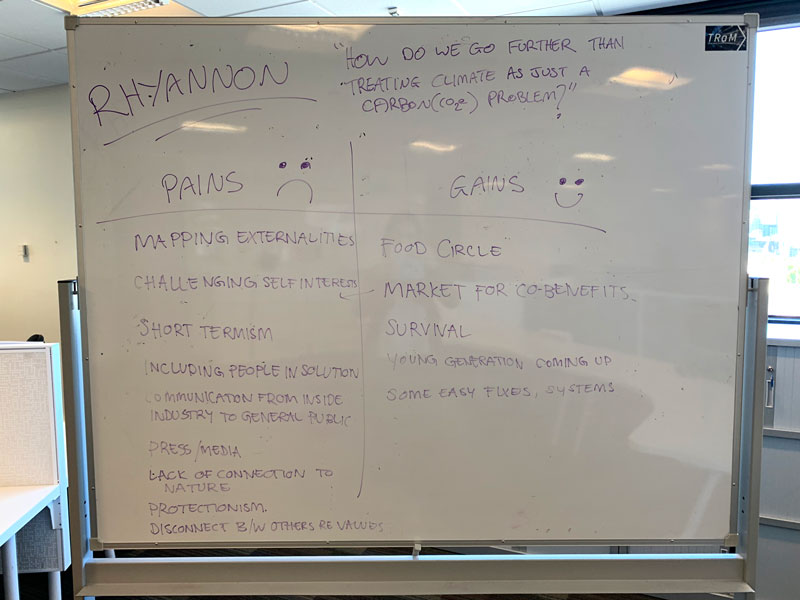 RHYANNON
"HOW DO WE GO FURTHER THAN
TREATING CLIMATE AS JUST A
CARBON(CO2e) PROBLEM?"
TRoM
PAINS
MAPPING EXTERNALITIES
CHALLENGING SELF INTERESTS
SHORT TERMISM
INCLUDING PEOPLE IN SOLUTION
COMMUNICATION FROM INSIDE
INDUSTRY TO GENERAL PUBLIC
PRESS/MEDIA
LACK OF CONNECTION TO
NATURE
PROTECTIONISM.
DISCONNECT B/W OTHERS RE VALUES
GAINS
FOOD CIRCLE
MARKET FOR CO-BENEFITS.
SURVIVAL
YOUNG GENERATION COMING UP
SOME EASY FIXES, SYSTEMS